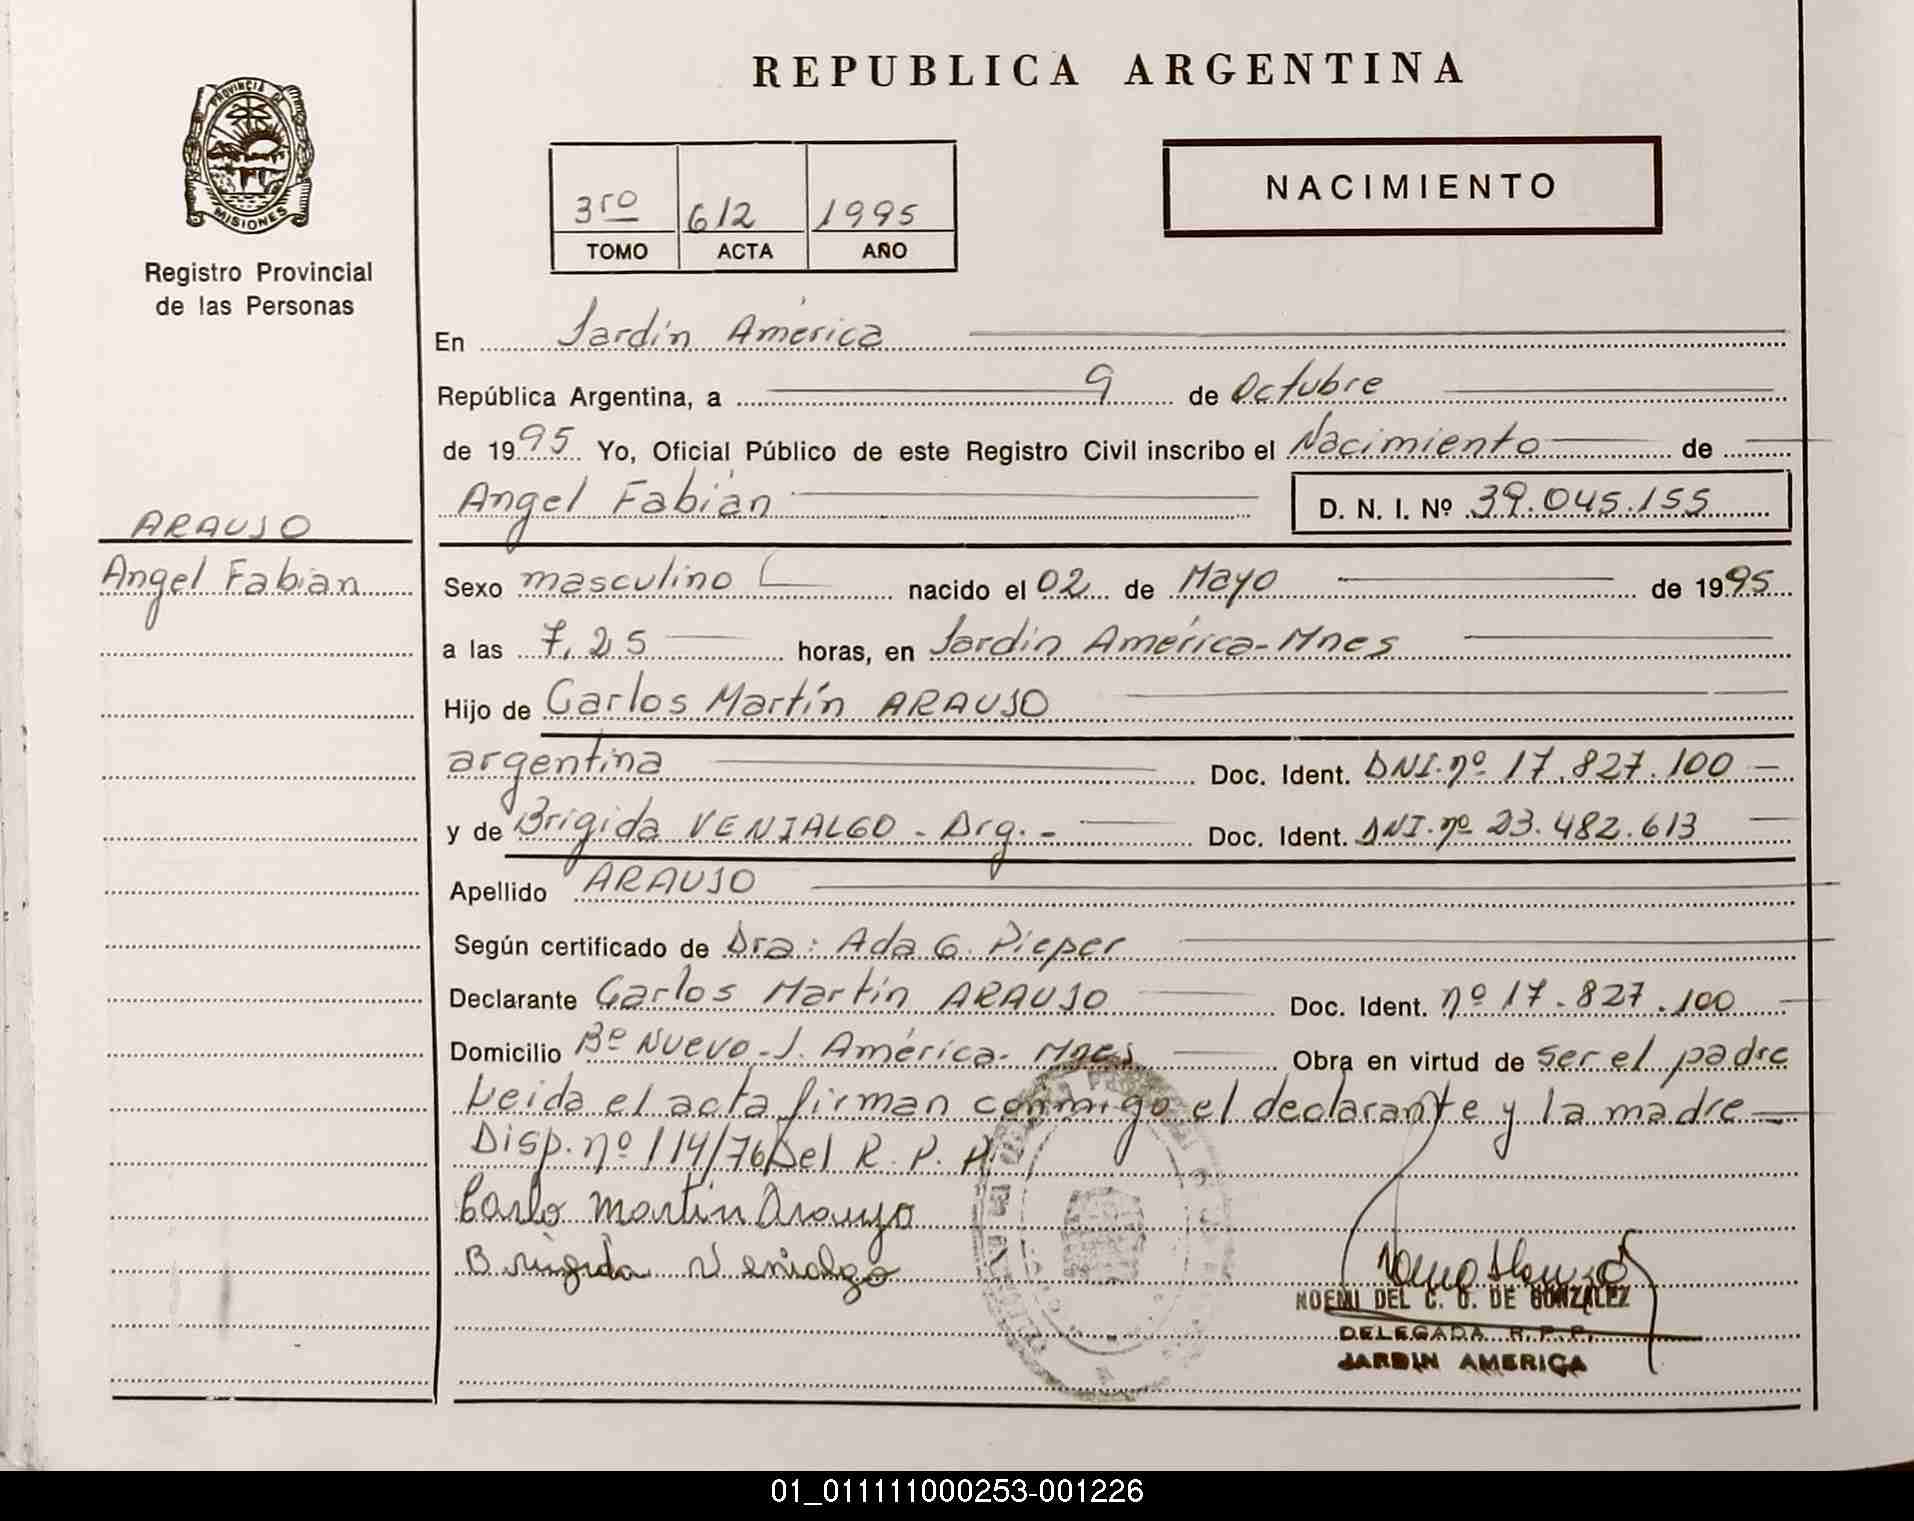 REPUBLICA ARGENTINA
PROVINCIA DE
MISIONES
Registro Provincial
de las Personas
3ro 612 1995
TOMO ACTA AÑO
NACIMIENTO
En Jardín América
República Argentina, a 9 de Octubre
de 1995 Yo, Oficial Público de este Registro Civil inscribo el Nacimiento de
Angel Fabián D. N. I. Nº 39.045.155
ARAUJO
Angel Fabian
Sexo masculino nacido el 02 de Mayo de 1995
a las 7,25 horas, en Jardín América-Mnes
Hijo de Carlos Martín ARAUJO
argentina Doc. Ident. DNI.nº 17.827.100
y de Brigida VENIALGO - Arg.- Doc. Ident. DNI.nº 23.482.613
Apellido ARAUJO
Según certificado de Dra: Ada G. Pieper
Declarante Carlos Martín ARAUJO Doc. Ident. nº 17.827.100
Domicilio Bº Nuevo-J. América- Mnes Obra en virtud de ser el padre
Leida el acta firman conmigo el declarante y la madre
Disp. nº 114/76 Del R. P. P.
Carlo Martin Araujo
Brigida Venialgo
NOEMI DEL C. O. DE GONZALEZ
DELEGADA R. P. P.
JARDIN AMERICA
01_011111000253-001226